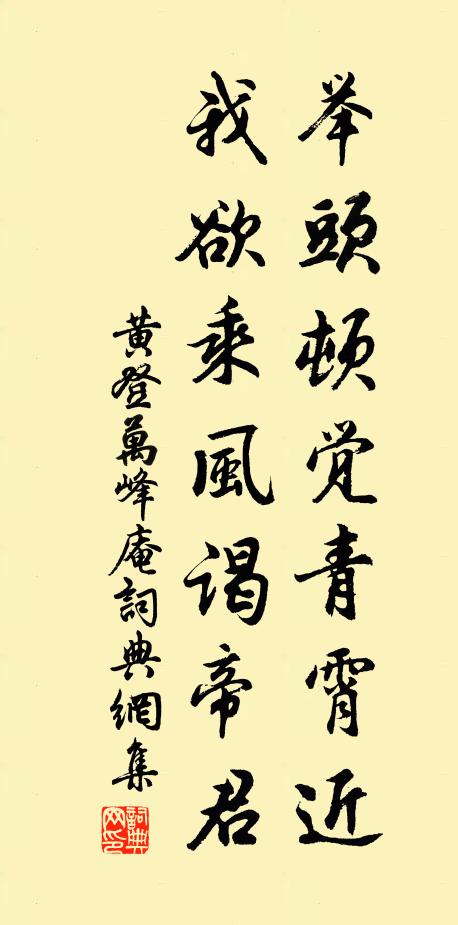 举頭頓覺青霄近
我欲乘風謁帝君
黄登萬峰庵詞典網集
詞典网印